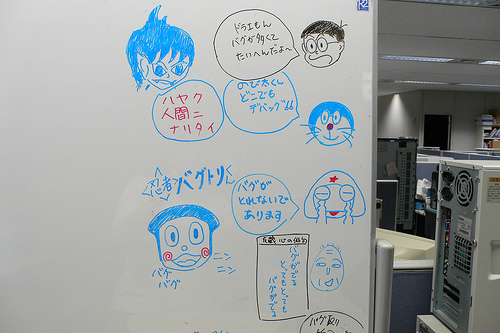 ドラえもん
バグが多くて
たいへんだよ〜
のび太くん
どこでも
デバッグ
ハヤク
人間ニ
ナリタイ
忍者バグトリくん
バグが
とれないで
あります
ニン
ニン
バグ
バグ
心の俳句
バグがでる
とってもとっても
バグがでる
バグ取り